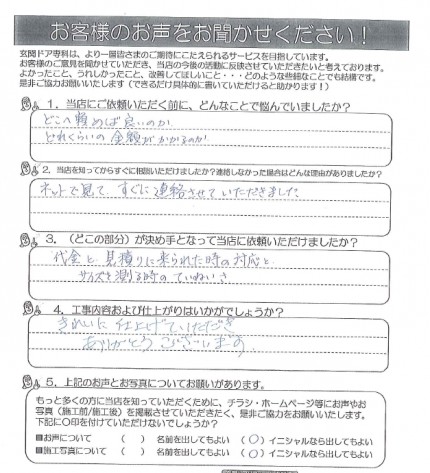 お客様のお声をお聞かせください！
玄関ドア専科は、より一層皆さまのご期待にこたえられるサービスを目指しています。
お客様のご意見を聞かせていただき、当店の今後の活動に反映させていただきたいと考えております。
よかったこと、うれしかったこと、改善してほしいこと・・・どのような些細なことでも結構です。
是非ご協力お願いいたします（できるだけ具体的に書いていただけると助かります！）
1．当店にご依頼いただく前に、どんなことで悩んでいましたか？
どこへ頼めば良いのか
どれくらいの金額がかかるのか
2．当店を知ってからすぐに相談いただけましたか？連絡しなかった場合はどんな理由がありましたか？
ネットで見てすぐに連絡させていただきました
3．（どこの部分）が決め手となって当店に依頼いただけましたか？
代金と見積りに来られた時の対応と
サイズを測る時のていねいさ
4．工事内容および仕上がりはいかがでしょうか？
きれいに仕上げていただき
ありがとうございます
5．上記のお声とお写真についてお願いがあります。
もっと多くの方に当店を知っていただくために、チラシ・ホームページ等にお声やお
写真（施工前/施工後）を掲載させていただきたく、是非ご協力をお願いいたします。
下記に〇印を付けていただけないでしょうか？
■お声について （ ） 名前を出してもよい （〇）イニシャルなら出してもよい
■施工写真について （ ） 名前を出してもよい （〇）イニシャルなら出してもよい